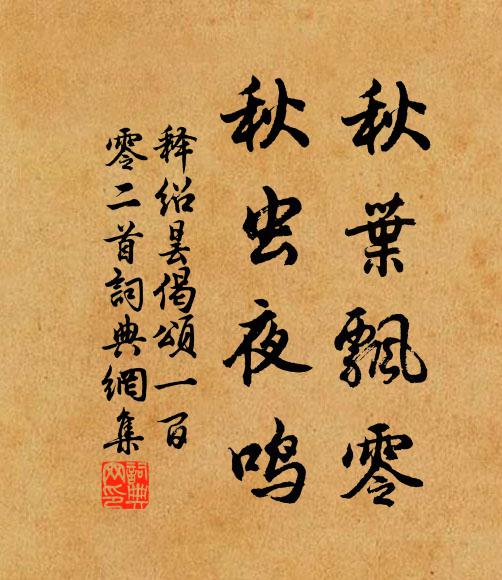 秋葉飄零
秋虫夜鸣
释绍昙偈頌一百
零二首詞典網集
詞典網印